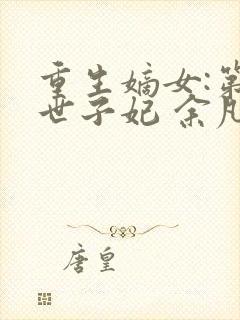 重生嫡女:第
世子妃 余凡
唐皇